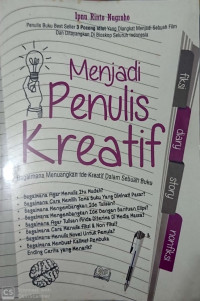 Ipnu Rinto Nogroho
Penulis Buku Best Seller 3 Pocong Idiot Yang Diangkat Menjadi Sebuah Film
Dan Ditayangkan Di Bioskop Seluruh Indonesia
Menjadi
Penulis
Kreatif
fiksi
diary
story
nonfiksi
Bagaimana Menuangkan Ide Kreatif Dalam Sebuah Buku
• Bagaimana Agar Menulis Itu Mudah?
• Bagaimana Cara Memilih Tema Buku Yang Diminati Pasar?
• Bagaimana Mengembangkan Ide Tulisan?
• Bagaimana Mengembangkan Ide Dengan Bantuan Clip?
• Bagaimana Agar Tulisan Anda Diterima Di Media Massa?
• Bagaimana Cara Menulis Fiksi & Non Fiksi?
• Bagaimana Menulis Novel Untuk Pemula?
• Bagaimana Membuat Kalimat Pembuka
Ending Cerita Yang Menarik?
CS